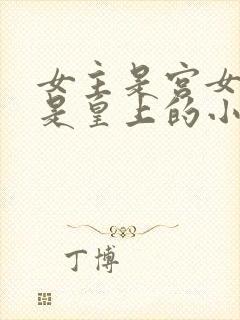 女主是宫女
是皇上的小
丁博